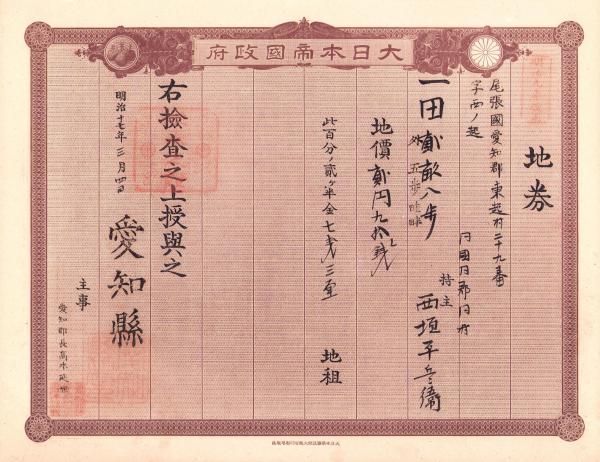 大日本帝國政府
地券
尾張國愛知郡東起村二十九番
字西ノ起
同國同郡同村
持主 西垣平兵衞
一田貳畝八歩
外 五歩 畦畔
地價貳円九拾
此百分ノ貳ヶ半金七 三厘 地租
右檢査之上授與之
明治十七年三月四日 愛知縣
主事
愛知郡長高木